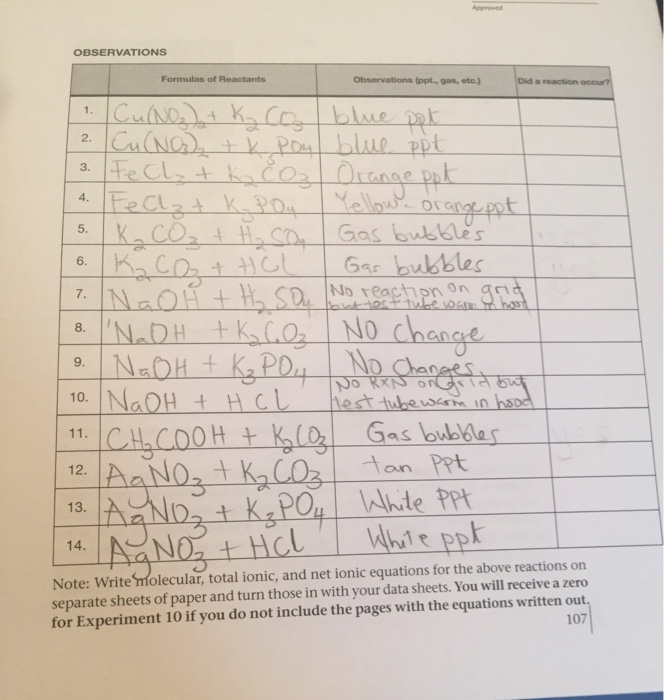 Approved
OBSERVATIONS
Formulas of Reactants Observations (ppt., gas, etc.) Did a reaction occur?
1. Cu(NO₃)₂ + K₂CO₃ blue ppt
2. Cu(NO₃)₂ + K₃PO₄ blue ppt
3. FeCl₃ + K₂CO₃ Orange ppt
4. FeCl₃ + K₃PO₄ Yellow-orange ppt
5. K₂CO₃ + H₂SO₄ Gas bubbles
6. K₂CO₃ + HCl Gas bubbles
7. NaOH + H₂SO₄ No reaction on grid
but test tube warm in hood
8. NaOH + K₂CO₃ NO Change
9. NaOH + K₃PO₄ No Changes
10. NaOH + HCl NO RXN on Grid but
test tube warm in hood
11. CH₃COOH + K₂CO₃ Gas bubbles
12. AgNO₃ + K₂CO₃ tan ppt
13. AgNO₃ + K₃PO₄ White PPt
14. AgNO₃ + HCl White ppt
Note: Write molecular, total ionic, and net ionic equations for the above reactions on
separate sheets of paper and turn those in with your data sheets. You will receive a zero
for Experiment 10 if you do not include the pages with the equations written out.
107